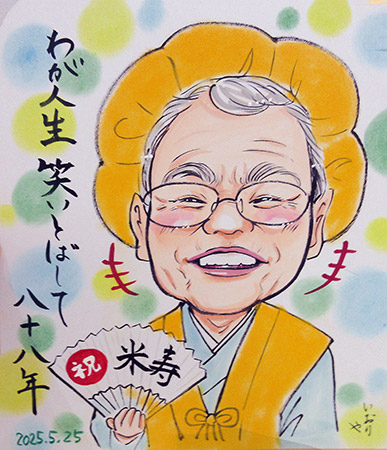 わが人生
笑いとばして
八十八年
祝
米寿
2025.5.25
いおり
や